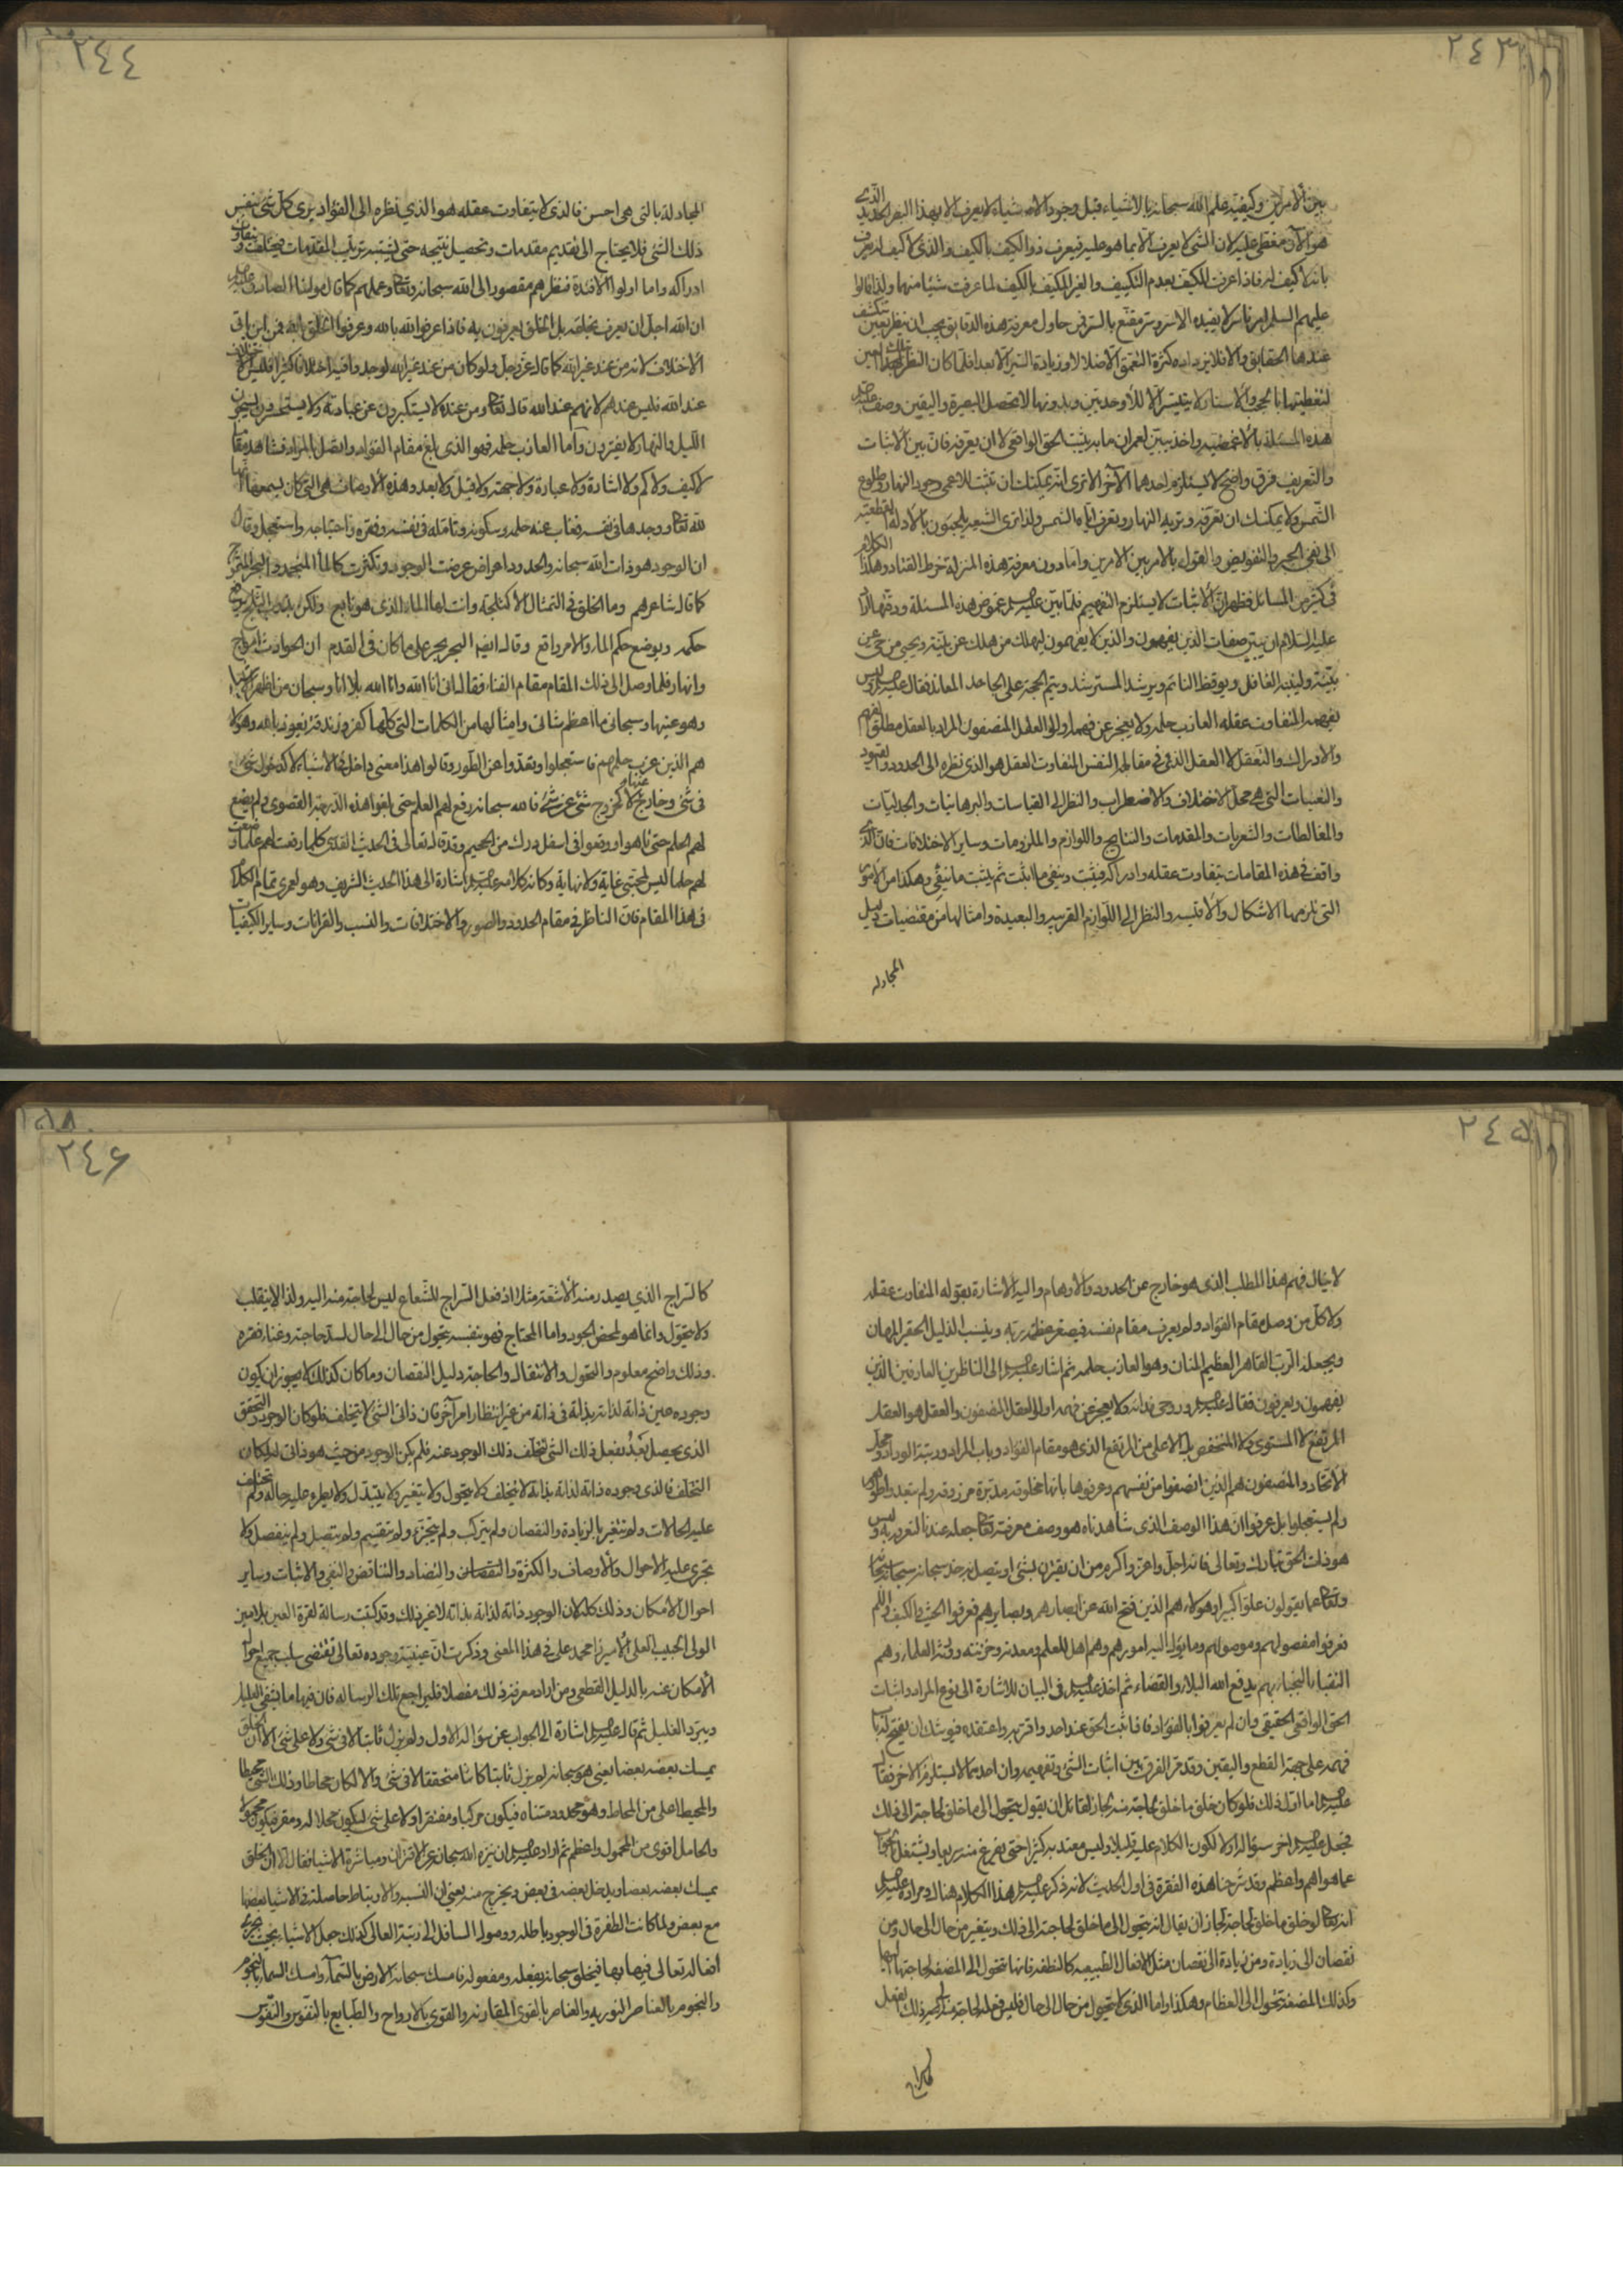 ٢٤٣
بين الامرين وكيفية علم الله سبحانه بالاشياء قبل وجود الاشياء لا يعرف الا بهذا البصر الحديد الذي
هو الآن مغطى عليه لان الشئ لا يعرف الا بما هو عليه فيعرف ذو الكيف بالكيف والذي لا كيف له يعرف
بانه لا كيف له فاذا عرفت المكيف بعدم التكييف والغير المكيف بالكيف لما عرفت شيئا منهما ولذا قالوا
عليهم السلم لا يفيده الا ستر مقنع بالسر فمن حاول معرفة هذه الدقايق يجب ان ينظر بعين تنكشف
عندها الحقايق والا فلا يزداده كثرة التعمق الا ضلالا وزيادة السير الا بعدا فلما كان النظر بتلك العين
لتغطيتها بالحجب والاستار لا يتيسر الا للاوحديين وبدونها لا تحصل البصيرة واليقين وصف
هذه المسئلة بالا واخذ يبين لعمران ما به يثبت الحق الواقعي لا ان يعرفه فان بين الاثبات
والتعريف فرق واضح لا يستلزم احدهما الآخر الا ترى انه يمكنك ان تثبت للاعمى وجود النهار وطلوع
الشمس ولا يمكنك ان تعرفه وتريه النهار وتعرف اياه الشمس ولذا ترى الشيعة يجيبون بالادلة القطعية
الى نفي الجبر والتفويض والقول بالامر بين الامرين واما دون معرفة هذه المنزلة خرط القتاد وهكذا الكلام
في كثير من المسائل فظهر ان الاثبات لا يستلزم التفهيم فلما بين غموض هذه المسئلة ودقتها اراد
عليه السلام ان يبين صفات الذين يفهمون والذين لا يفهمون ليهلك من هلك عن بينة ويحيى من حي عن
بينة ولينبه الغافل ويوقظ النائم ويرشد المسترشد ويتم الحجة على الجاحد المعاند فقال وليس
يفهمه المتفاوت عقله العازب حلمه ولا يعجز عن فهمه اولوا العقل المنصفون المراد بالعقل مطلق الفهم
والادراك والتعقل لا العقل الذي في مقابلة النفس المتفاوت العقل هو الذي نظره الى الحدود والقيود
والتعينات التي هي محل الاختلاف والاضطراب والنظر الى القياسات والبرهانيات والجدليات
والمغالطات والشعريات والمقدمات والنتايج واللوازم والملزومات وساير الاختلافات فان الذي
واقف في هذه المقامات يتفاوت عقله وادراكه فيثبت وينفي ما اثبت ثم يثبت ما نفى وهكذا من الامور
التي تلزمها الاشكال والاقيسه والنظر الى اللوازم القريبه والبعيدة وامثالها من مقتضيات دليل
المجادله
٢٤٤
المجادلة بالتي هي احسن فالذي لا يتفاوت عقله هو الذي نظره الى الفؤاد يرى كل شئ بنفس
ذلك الشئ فلا يحتاج الى تقديم مقدمات وتحصيل نتيجه حتى يشتبه ترتيب المقدمات فيختلف ويتفاوت
ادراكه واما اولوا الافئدة فنظرهم مقصور الى الله سبحانه وتعالى وعملهم كما قال مولينا الصادق
ان الله اجل ان يعرف بخلقه بل الخلق يعرفون به فاذا عرفوا الله بالله وعرفوا الخلق بالله فمن اين ياتي
الاختلاف لانه من عند غير الله كما قال عز وجل ولو كان من عند غير الله لوجدوا فيه اختلافا كثيرا فليس
عند الله فليس عندهم لانهم عند الله قال تعالى ومن عنده لا يستكبرون عن عبادته ولا يستحسرون يسبحون
الليل والنهار لا يفترون واما العازب حلمه فهو الذي بلغ مقام الفؤاد واتصل بالمراد فشاهد مقاما
لا كيف ولا كم ولا اشارة ولا عبارة ولا جهة ولا قبل ولا بعد وهذه الاوصاف هي التي كان يسمعها انها
لله تعالى ووجدها في نفسه فغاب عنه حلمه وسكونه وتامله في نفسه وفقره واحتياجه واستعجل وقال
ان الوجود هو ذات الله سبحانه والحدود اعراض عرضت الوجود وتكثرت كالماء المنجمد والبحر المتموج
كما قال شاعرهم وما الخلق في التمثال الا كثلجة وانت لها الماء الذي هو نابع ولكن بذوب الثلج يرفع
حكمه ويوضع حكم الماء والامر واقع وقال ايضا البحر بحر على ما كان في القدم ان الحوادث امواج
وانهار فلما وصل الى ذلك المقام مقام الفناء فقال اني انا الله وانا الله بلا انا وسبحان من اظهر الاشياء
وهو عينها وسبحاني ما اعظم شاني وامثالها من الكلمات التي كلها كفر وزندقة نعوذ بالله وهؤلاء
هم الذين عزب حلمهم فاستعجلوا وتعدوا عن الطور وقالوا هذا معنى داخل في الاشياء لا كدخول شئ
في شئ وخارج عنها لا كخروج شئ عن شئ فالله سبحانه رفع لهم العلم حتى بلغوا هذه الدرجة القصوى ولم يضع
لهم الحلم حتى تاهوا ووقعوا في اسفل درك من الجحيم وقد قال تعالى في الحديث القدسي كلما رفعت لهم علما وضعت
لهم حلما ليس لمحبتي غاية ولا نهاية وكانه كلامه اشارة الى هذا الحديث الشريف وهو لعمري تمام الكلام
في هذا المقام فان الناظر في مقام الحدود والصور والاختلافات والنسب والقرانات وساير الكيفيات
٢٤٥
لا ينال فهم هذا المطلب الذي هو خارج عن الحدود والاوهام واليه الاشارة بقوله المتفاوت عقله
ولا كل من وصل مقام الفؤاد ولم يعرف مقام نفسه فيصغر عظمة ربه وينسب الذليل الحقير المهان
ويجعله الرب القاهر العظيم المنان وهو العازب حلمه ثم اشار الى الناظرين العارفين الذين
يفهمون ويعرفون فقال وروحي فداه ولا يعجز عن فهمه اولوا العقل المنصفون والعقل هو العقل
المرتفع لا المستوي ولا المنخفض بل الاعلى من المرتفع الذي هو مقام الفؤاد وباب المراد ورتبة الوداد ومحل
الاتحاد والمنصفون هم الذين انصفوا من نفسهم وعرفوها بانها مخلوقة مدبرة مرزوقة ولم يتعدوا طورهم
ولم يستعجلوا بل عرفوا ان هذا الوصف الذي شاهدناه هو وصف معرفة تعالى جعله عندنا لنعرفه به وليس
هو ذات الحق تبارك وتعالى فانه اجل واعز واكرم من ان يقترن بشئ او يتصل به حد سبحانه سبحانه
وتعالى عما يقولون علوا كبيرا وهؤلاء هم الذين فتح الله عن ابصارهم وبصايرهم فعرفوا الحيث والكيف واللم
فعرفوا مفصولهم وموصولهم وما يؤل اليه امورهم وهم اهل العلم ومعدنه وخزنته العلماء وهم
النقباء النجباء بهم يدفع الله البلاء والقضاء ثم اخذ في البيان للاشارة الى نوع المراد واثبات
الحق الواقعي الحقيقي وان لم يعرفوا بالفؤاد فاذا ثبت الحق عند احد واقر به واعتقده فيوشك ان يفتح له باب
فهمه على جهة القطع واليقين وقد مر الفرق بين اثبات الشئ وتفهيمه وان احدهما لا يستلزم الآخر فقال
اما اول ذلك فلو كان خلق ما خلق لحاجة منه لجاز لقائل ان يقول يتحول الى ما خلق لحاجته الى ذلك
فجعل اخر سؤاله اولا لكون الكلام عليه قليلا وليس معتد به كثيرا حتى يفرغ منه سريعا ويشتغل بالجواب
عما هو اهم واعظم وقد شرحنا هذه الفقرة في اول الحديث لانه ذكر هذا الكلام هناك ومراده
انه تعالى لو خلق ما خلق لحاجة لجاز ان يقال انه يتحول الى ما خلق لحاجته الى ذلك ويتغير من حال الى حال ومن
نقصان الى زيادة ومن زيادة الى نقصان مثل الافعال الطبيعيه كالنطفه فانها تتحول الى المضغة لحاجتها اليها
وكذلك المضغة تتحول الى العظام وهكذا واما الذي لا يتحول من حال الى حال فليس فعله لحاجة منه
كالسراج
٢٤٦
كالسراج الذي يصدر منه الاشعة مثلا اذ فعل السراج للشعاع ليس لحاجة منه اليه ولذا لا ينقلب
ولا يتحول وانما هو لمحض الجود واما المحتاج فهو بنفسه يتحول من حال الى حال لسد حاجته وغناء فقره
وذلك واضح معلوم والتحول والانتقال والحاجة دليل النقصان وما كان كذلك لا يجوز ان يكون
وجوده عين ذاته لذاته بذاته في ذاته من غير انتظار امر آخر فان ذاتي الشئ لا يتخلف فلو كان الوجود التحقق
الذي يحصل بعد بفعل ذلك الشئ تخلف ذلك الوجود عنه فلم يكن الوجود من حيث هو ذاتي له لمكان
التخلف فالذي وجوده ذاته لذاته بذاته لا يتخلف ولا يتحول ولا يتغير ولا يتبدل ولا يطرء عليه حالة ولم تختلف
عليه الحالات ولم يتغير بالزيادة والنقصان ولم يتركب ولم يتجزء ولم يتقسم ولم يتصل ولم ينفصل ولا
تجري عليه الاحوال والاوصاف والكثرة والنقصان والتضاد والتناقض والنفي والاثبات وساير
احوال الامكان وذلك كله لان الوجود ذاته لذاته بذاته لا غير ذلك وقد كتبت رسالة لقرة العين بلامين
المولى الحبيب العلي الاميرزا محمد علي في هذا المعنى وذكرت ان عينية وجوده تعالى تقتضي سلب جميع احوال
الامكان عنه بالدليل القطعي ومن اراد معرفة ذلك مفصلا فليراجع تلك الرساله فان فيها ما يشفي العليل
ويبرد الغليل ثم قال اشارة الى الجواب عن سؤاله الاول ولم يزل ثابتا لا في شئ ولا على شئ الا ان الخلق
يمسك بعضه بعضا يعني هو سبحانه لم يزل ثابتا كائنا متحققا لا في شئ والا لكان محاطا وذلك الشئ محيطا
والمحيط اعلى من المحاط وهو محدود متناه فيكون مركبا ومفتقرا ولا على شئ ليكون محلا له ومقرا فيكون محمولا
والحامل اقوى من المحمول واعظم ثم اراد ان ينزه الله سبحانه عن الاقتران ومباشرة الاشياء فقال الا ان الخلق
يمسك بعضه بعضا ويدخل بعضه في بعض ويخرج منه يعني ان النسبة والارتباط حاصلة في الاشياء بعضها
مع بعض ولما كانت الطفرة في الوجود باطله ووصول السافل الى رتبة العالي كذلك جعل الاشياء بحيث يجري
افعاله تعالى فيها بها فيخلق سبحانه بفعله ومفعوله فامسك سبحانه الارض بالسماء وامسك السماء بالنجوم
والنجوم بالعناصر النوريه والعناصر بالقوى المقارنه والقوى بالارواح والطبايع بالنفوس والنفوس